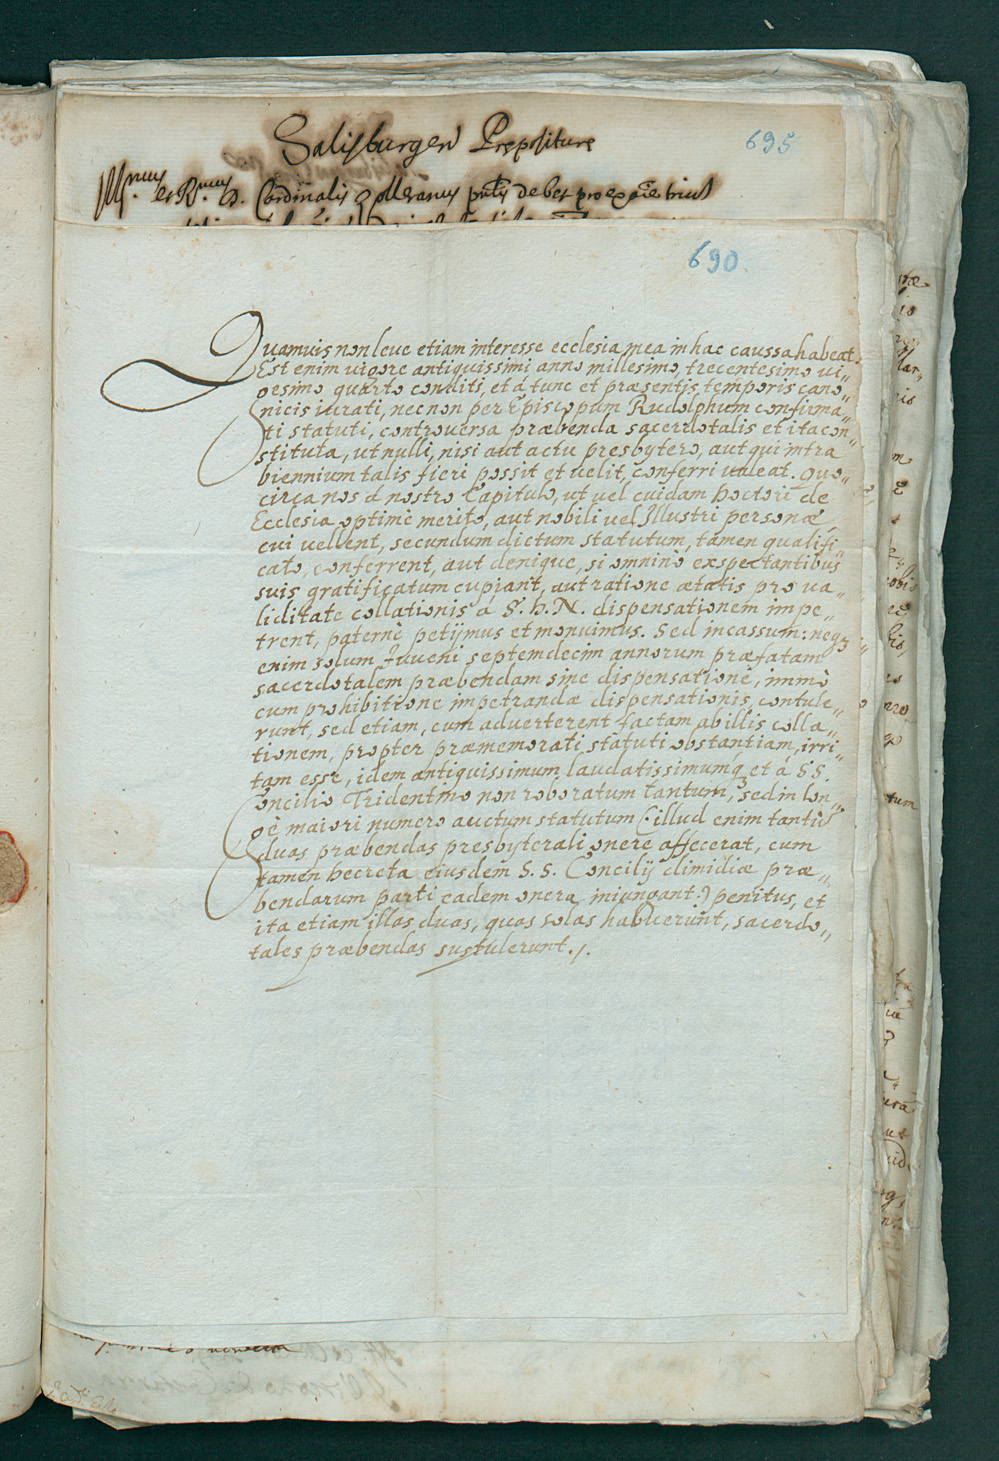 Salisburgen Prępositurę
695
Ill.mus et R.mus D. Cardinalis debet pro trium
690.
Quamuis non leue etiam interesse ecclesia mea in hac caussa habeat.
Est enim uigore antiquissimi anno millesimo, trecentesimo ui„
gesimo quarto conditi, et á tunc et præsentis temporis cano„
nicis iurati, necnon per Episcopum Rudolphum confirma„
ti statuti, controuersa præbenda sacerdotalis et ita con„
stituta, ut nulli, nisi aut actu presbytero, aut qui intra
biennium talis fieri possit et uelit, conferri ualeat. Quo„
circa nos á nostro Capitulo, ut uel cuidam Doctori de
Ecclesia optimè merito, aut nobili uel Illustri personæ,
cui uellent, secundum dictum statutum, tamen qualifi„
cato, conferrent, aut denique, si omninò exspectantibus
suis gratificatum cupiant, aut ratione ætatis pro ua„
liditate collationis á S. D. N. dispensationem impe„
trent, paternè petijmus et monuimus. Sed incassum: neq3
enim solum Iuueni septemdecim annorum præfatam
sacerdotalem præbendam sine dispensatione, immò
cum prohibitione impetrandæ dispensationis, contule„
runt, sed etiam, cum aduerterent factam ab illis colla„
tionem, propter præmemorati statuti obstantiam, irri„
tam esse, idem antiquissimum, laudatissimumq3 et á S.S.
Concilio Tridentino non roboratum tantum, sed in lon„
gè maiori numero auctum statutum (: illud enim tantùm
duas præbendas presbyterali onere affecerat, cum
tamen Decreta eiusdem S.S. Concilij dimidiæ præ„
bendarum parti eadem onera iniungant :) penitus, et
ita etiam illas duas, quas solas habuerunt, sacerdo„
tales præbendas sustulerunt./.
tum